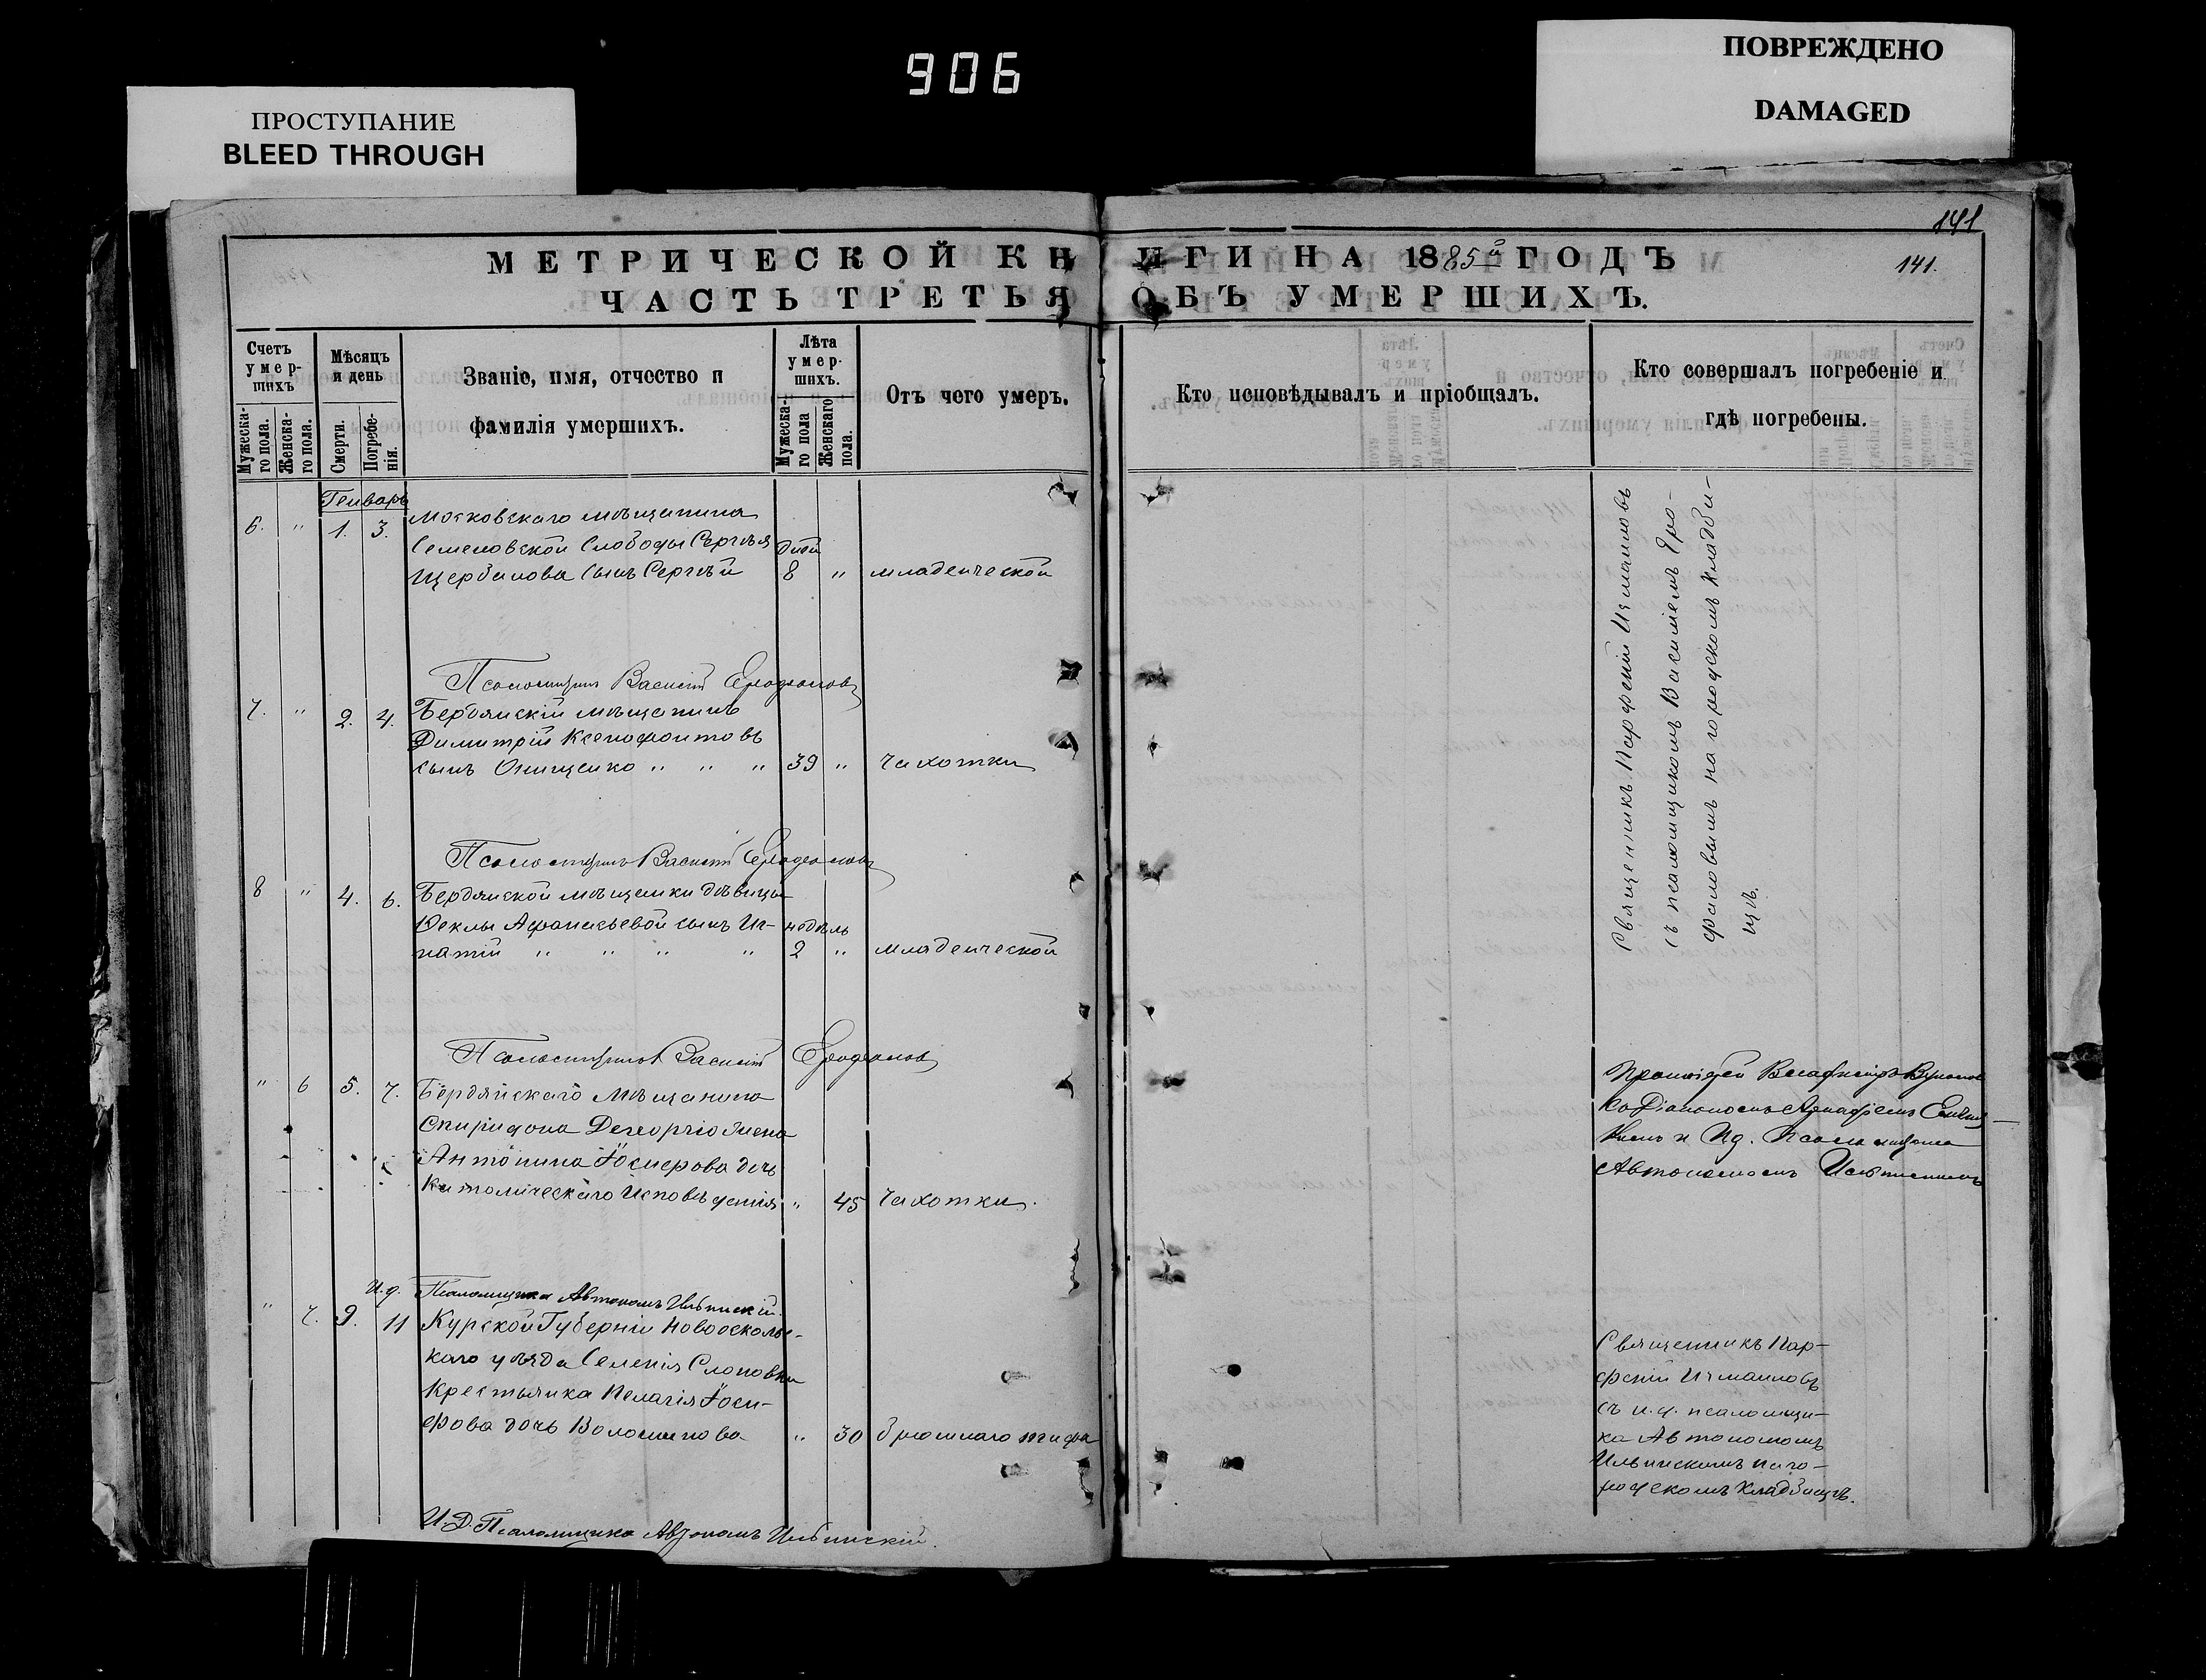 906
ПРОСТУПАНИЕ
BLEED THROUGH
ПОВРЕЖДЕНО
DAMAGED
141
МЕТРИЧЕСКОЙ КНИГИ НА 1885й ГОДЪ
141.
ЧАСТЬ ТРЕТЬЯ ОБЪ УМЕРШИХЪ.
Счетъ умер-шихъ
Мужеска-го пола.
Женска-го пола.
Мѣсяцъ и день
Смерти.
Погребе-нія.
Званіе, имя, отчество и
фамилія умершихъ.
Лѣта умер-шихъ.
Мужеска-го пола
Женскаго пола.
Отъ чего умеръ.
Кто исповѣдывалъ и пріобщалъ.
Кто совершалъ погребеніе и
гдѣ погребены.
Генварь
6. " 1. 3. Московскаго мѣщанина
Семеновской Слободы Сергѣя дней
Щербакова сынъ Сергѣй 8 " младенческой
Священникъ Парфеній Измаиловъ
съ псаломщикомъ Василіемъ Еро-
феловымъ на городскомъ кладби-
щѣ.
Псаломщикъ Василій
7. " 2. 4. Бердянскій мѣщанинъ
Димитрій Ксенофонтовъ
сынъ Онищенко " " " 39 " чахотки
Псаломщикъ Василій
8 " 4. 6. Бердянской мѣщанки дѣвицы
Ѳеклы Афанасьевой сынъ Иг- недѣль
натій " " " " 2 " младенческой
Псаломщикъ Василій
" 6 5. 7. Бердянскаго мѣщанина
Спиридона жена
Антонина Іосифова дочь
Католическаго Исповѣданія " 45 чахотки.
Протоіерей
Съ Діакономъ Аркадіемъ
и И.д. Псаломщика
Автономомъ Ильинскимъ
И.д. Псаломщика Автономъ Ильинскій.
" 7. 9. 11 Курской Губерніи Новооскольс-
каго уѣзда Селенія Слоновки
Крестьянка Пелагія Іоси-
фова дочь Волошинова " 30 брюшнаго тифа
Священникъ Пар-
феній Измаиловъ
съ и.д. псаломщи-
ка Автономомъ
Ильинскимъ на го-
родскомъ кладбищѣ.
И.Д. Псаломщика Автономъ Ильинскій.